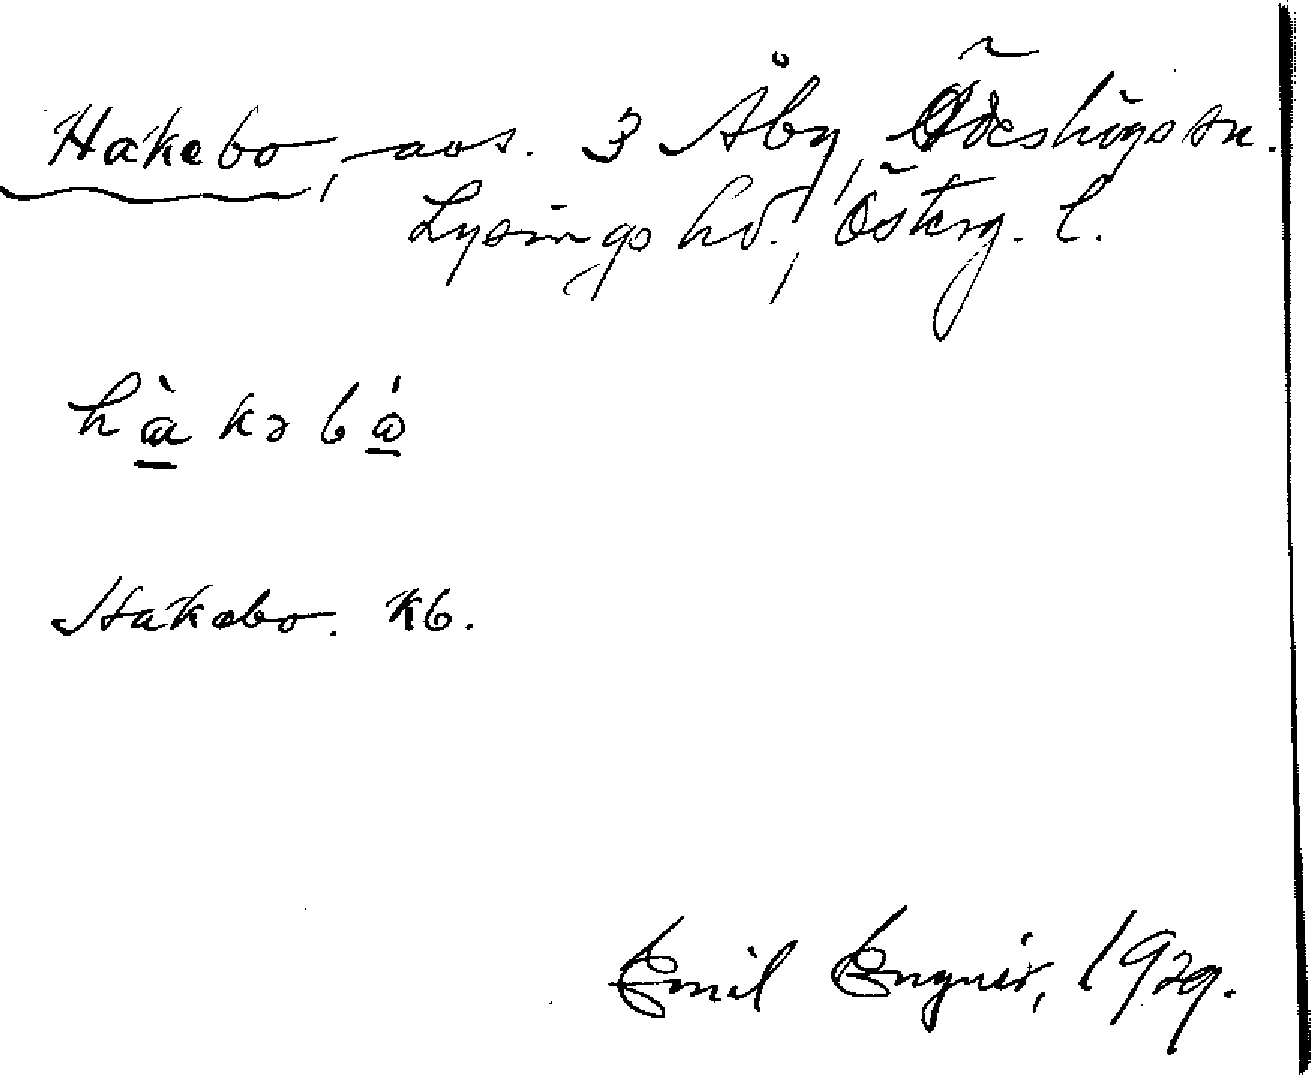 Hakebo, avs. 3 Åby, Ödeshögs sn.
Lysings hd., Österg. l.
hàkəbó
Hakebo. Kb.
Emil Engnér, 1929.